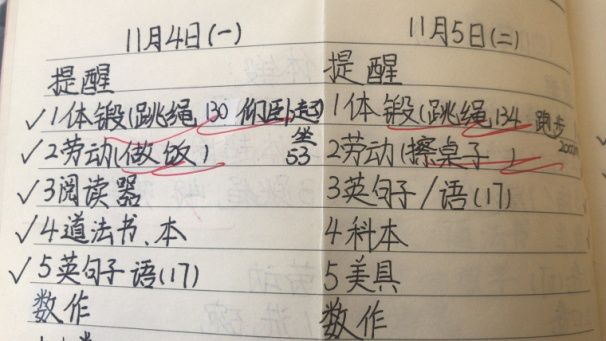 11月4日(一)
提醒
✓1体锻(跳绳 130 仰卧起坐53
✓2劳动(做饭)
✓3阅读器
✓4道法书、本
✓5英句子 语(17)
数作
11月5日(二)
提醒
1体锻(跳绳134 跑步200m
2劳动(擦桌子)
3英句子/语(17)
4科本
5美具
数作